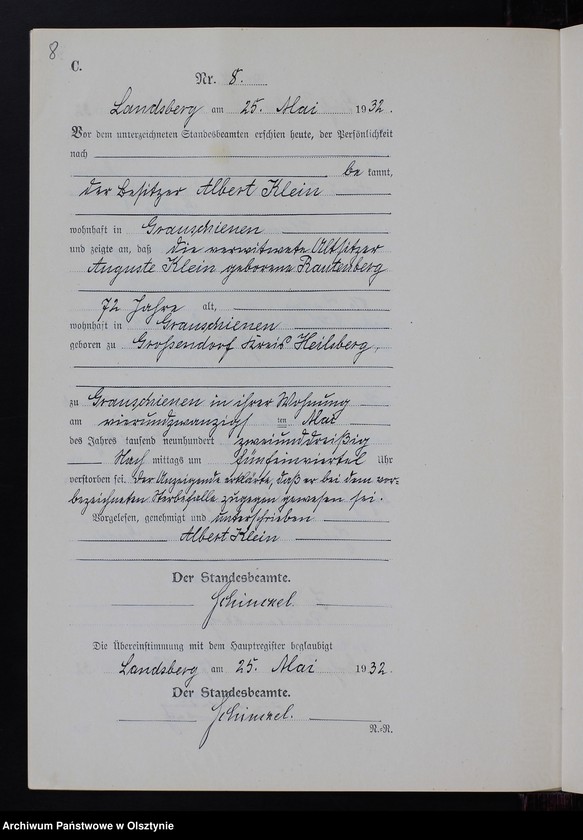 8
C.
Nr. 8.
Landsberg am 25. Mai 1932.
Vor dem unterzeichneten Standesbeamten erschien heute, der Persönlichkeit
nach
be kannt,
der Besitzer Albert Klein
wohnhaft in Grauschienen
und zeigte an, daß die verwitwete Altsitzer
Auguste Klein geborene Rautenberg
72 Jahre alt,
wohnhaft in Grauschienen
geboren zu Großendorf Kreis Heilsberg,
zu Grauschienen in ihrer Wohnung
am vierundzwanzigsten Mai
des Jahres tausend neunhundert zweiunddreißig
Nach mittags um fünfeinviertel Uhr
verstorben sei. Der Anzeigende erklärte, daß er bei dem vor-
bezeichneten Sterbefalle zugegen gewesen sei.
Vorgelesen, genehmigt und unterschrieben
Albert Klein
Der Standesbeamte.
Schinckel.
Die Übereinstimmung mit dem Hauptregister beglaubigt
Landsberg am 25. Mai 1932.
Der Standesbeamte.
Schinckel.
R.=R.
Archiwum Państwowe w Olsztynie